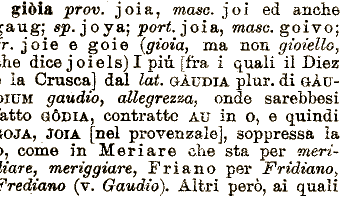 giòia prov. joia, masc. joi ed anche
gaug; sp. joya; port. joia, masc. goivo;
fr. joie e goie (gioia, ma non gioiello,
che dice joiels) I più [fra i quali il Diez
e la Crusca] dal lat. GÀUDIA plur. di GÀU-
DIUM gaudio, allegrezza, onde sarebbesi
fatto GÒDIA, contratto AU in O, e quindi
GOJA, JOIA [nel provenzale], soppressa la
D, come in Meriare che sta per meri-
diare, meriggiare, Friano per Fridiano,
Frediano (v. Gaudio). Altri però, ai quali